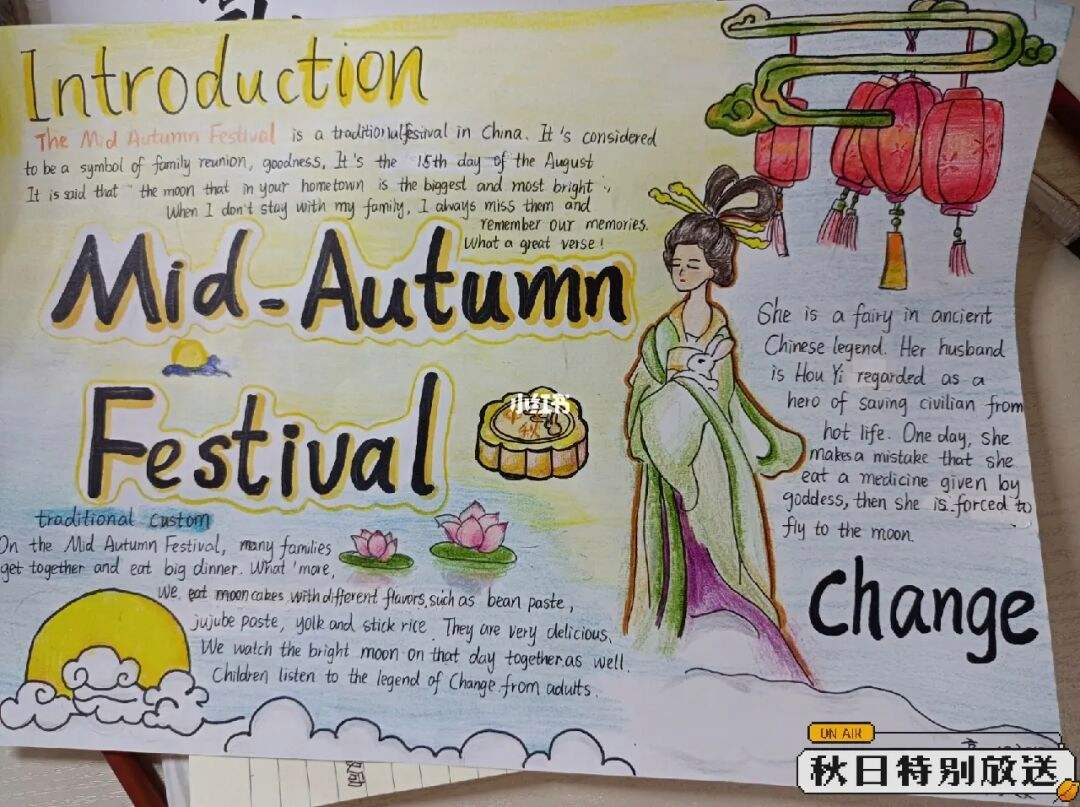 Introduction
The Mid Autumn Festival is a traditional festival in China. It's considered
to be a symbol of family reunion, goodness, It's the 15th day of the August
It is said that "the moon that in your hometown is the biggest and most bright".
When I don't stay with my family, I always miss them and
remember our memories.
What a great verse!
Mid-Autumn
Festival
小红书
中秋
traditional custom
On the Mid Autumn Festival, many families
get together and eat big dinner. What 'more,
We eat mooncakes with different flavors, such as bean paste,
jujube paste, yolk and stick rice. They are very delicious.
We watch the bright moon on that day together as well.
Children listen to the legend of Change from adults.
She is a fairy in ancient
Chinese legend. Her husband
is Hou Yi regarded as a
hero of saving civilian from
hot life. One day, she
makes a mistake that she
eat a medicine given by
goddess, then she is forced to
fly to the moon.
Change
ON AIR
秋日特别放送